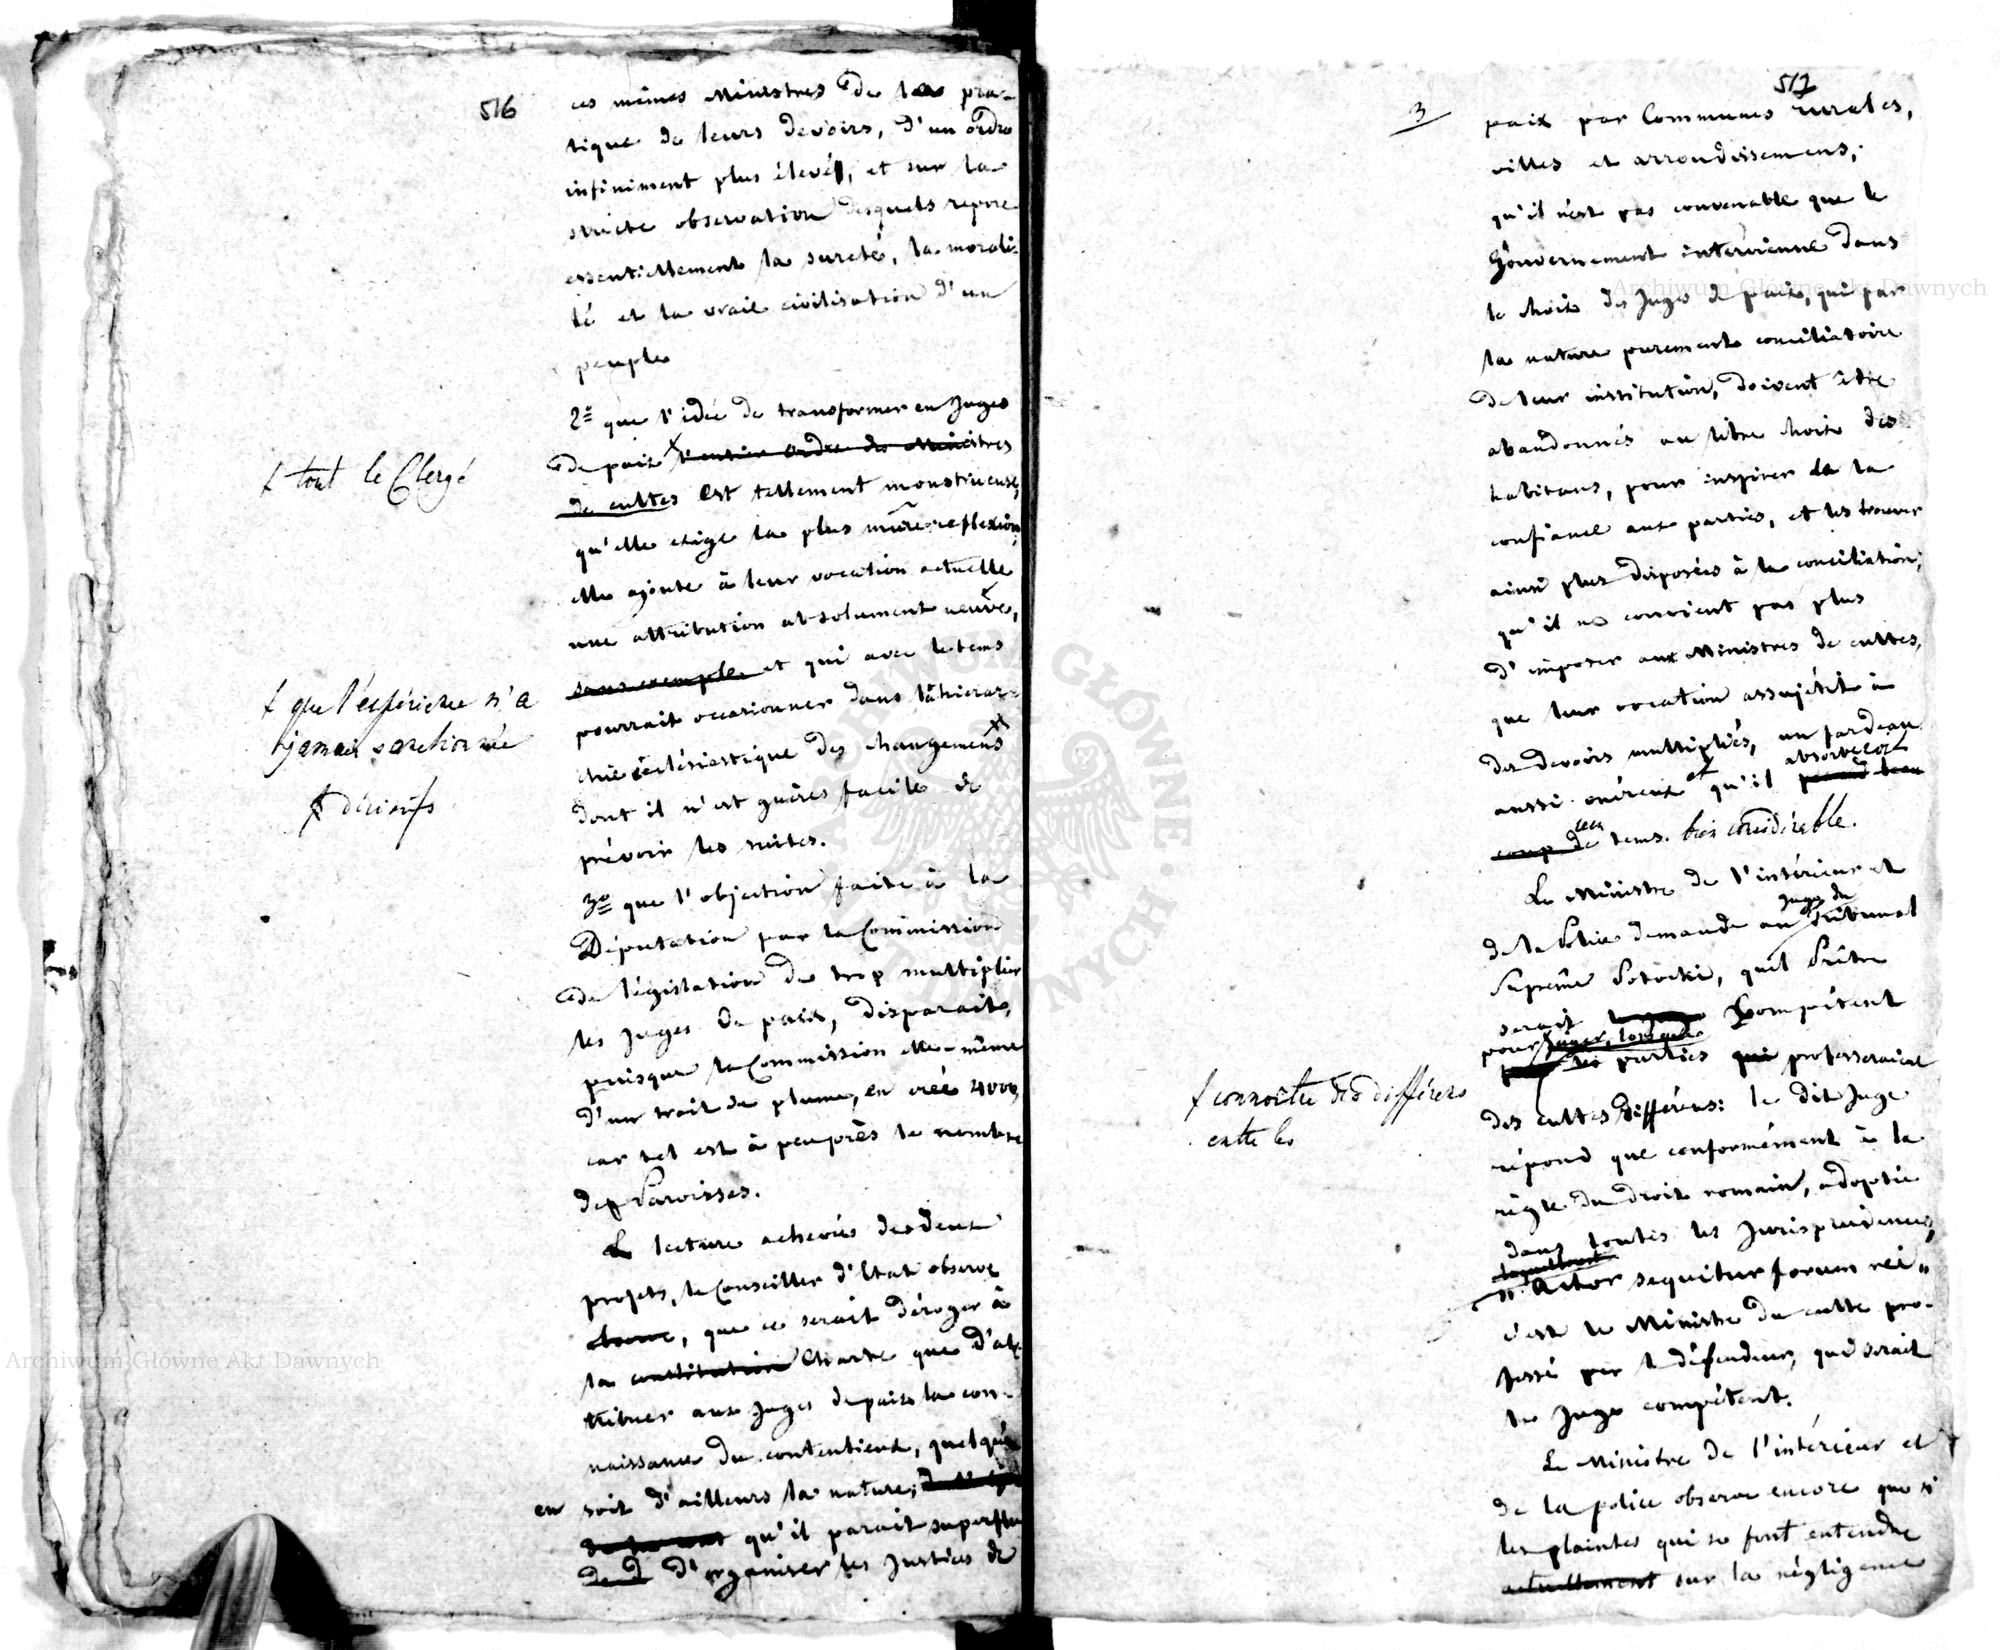 516
ces mêmes Ministres de la pra-
tique de leurs devoirs, d'un ordre
infiniment plus élevé, et sur la
stricte observation desquels repose
essentiellement la sureté, la morali-
té et la vraie civilisation d'un
peuple
2º que l'idée de transformer en Juges
de paix l'entier ordre des Ministres
+ tout le Clergé
de cultes est tellement monstrueuse,
qu'elle exige la plus mûre reflexion,
elle ajoute à leur vocation actuelle
une attribution absolument neuve,
sans exemple et qui avec le tems
+ que l'expérience n'a
jamais sanctionnée
pourrait occasionner dans l'hiérar-
chie écclésiastique des changemens
+ décisifs
dont il n'est guères facile de
prévoir les suites.
3º que l'objection faite à la
Députation par la Commission
de législation de trop multiplier
les Juges de paix, disparait,
puisque la Commission elle-même
d'un trait de plume, en crée 4000,
car tel est à peuprès le nombre
des Paroisses.
La lecture achevée des deux
projets, le Conseiller d'Etat observe
, que ce serait déroger à
la constitution Charte que d'at-
tribuer aux Juges de paix la con-
naissance du contentieux, quelqu'
en soit d'ailleurs la nature;
qu'il parait superflu
d'organiser les Justices de
517
3
paix par Communes rurales,
villes et arrondissemens;
qu'il n'est pas convenable que le
Gouvernement intervienne dans
le choix des Juges de paix, qui par
la nature purement conciliatoire
de leur institution, doivent être
abandonnés au libre choix des
habitans, pour inspirer de la
confiance aux parties, et les trouver
ainsi plus disposées à la conciliation;
qu'il ne convient pas plus
d'imposer aux Ministres de cultes,
que leur vocation assujétit à
des devoirs multipliés, un fardeau
aussi onéreux et qu'il absorberoit prend beau
coup de tems bien considérable.
Le Ministre de l'intérieur et
de la Police demande au Juge du Tribunal
Suprême Potocki, quel Prêtre
serait Compétent
pour juger, lorsque
les parties qui professeraient
+ connoître des différens
entre les
des cultes différens: le dit Juge
répond que conformément à la
règle du droit romain, adoptée
dans toutes les Jurisprudences,
"Actor sequitur forum rei"
c'est le Ministre du culte pro-
fessé par le défendeur, qui serait
le Juge compétent.
Le Ministre de l'intérieur et
de la police observe encore que si
les plaintes qui se font entendre
actuellement sur la négligence
Archiwum Główne Akt Dawnych
Archiwum Główne Akt Dawnych
ARCHIWUM GŁÓWNE AKT DAWNYCH